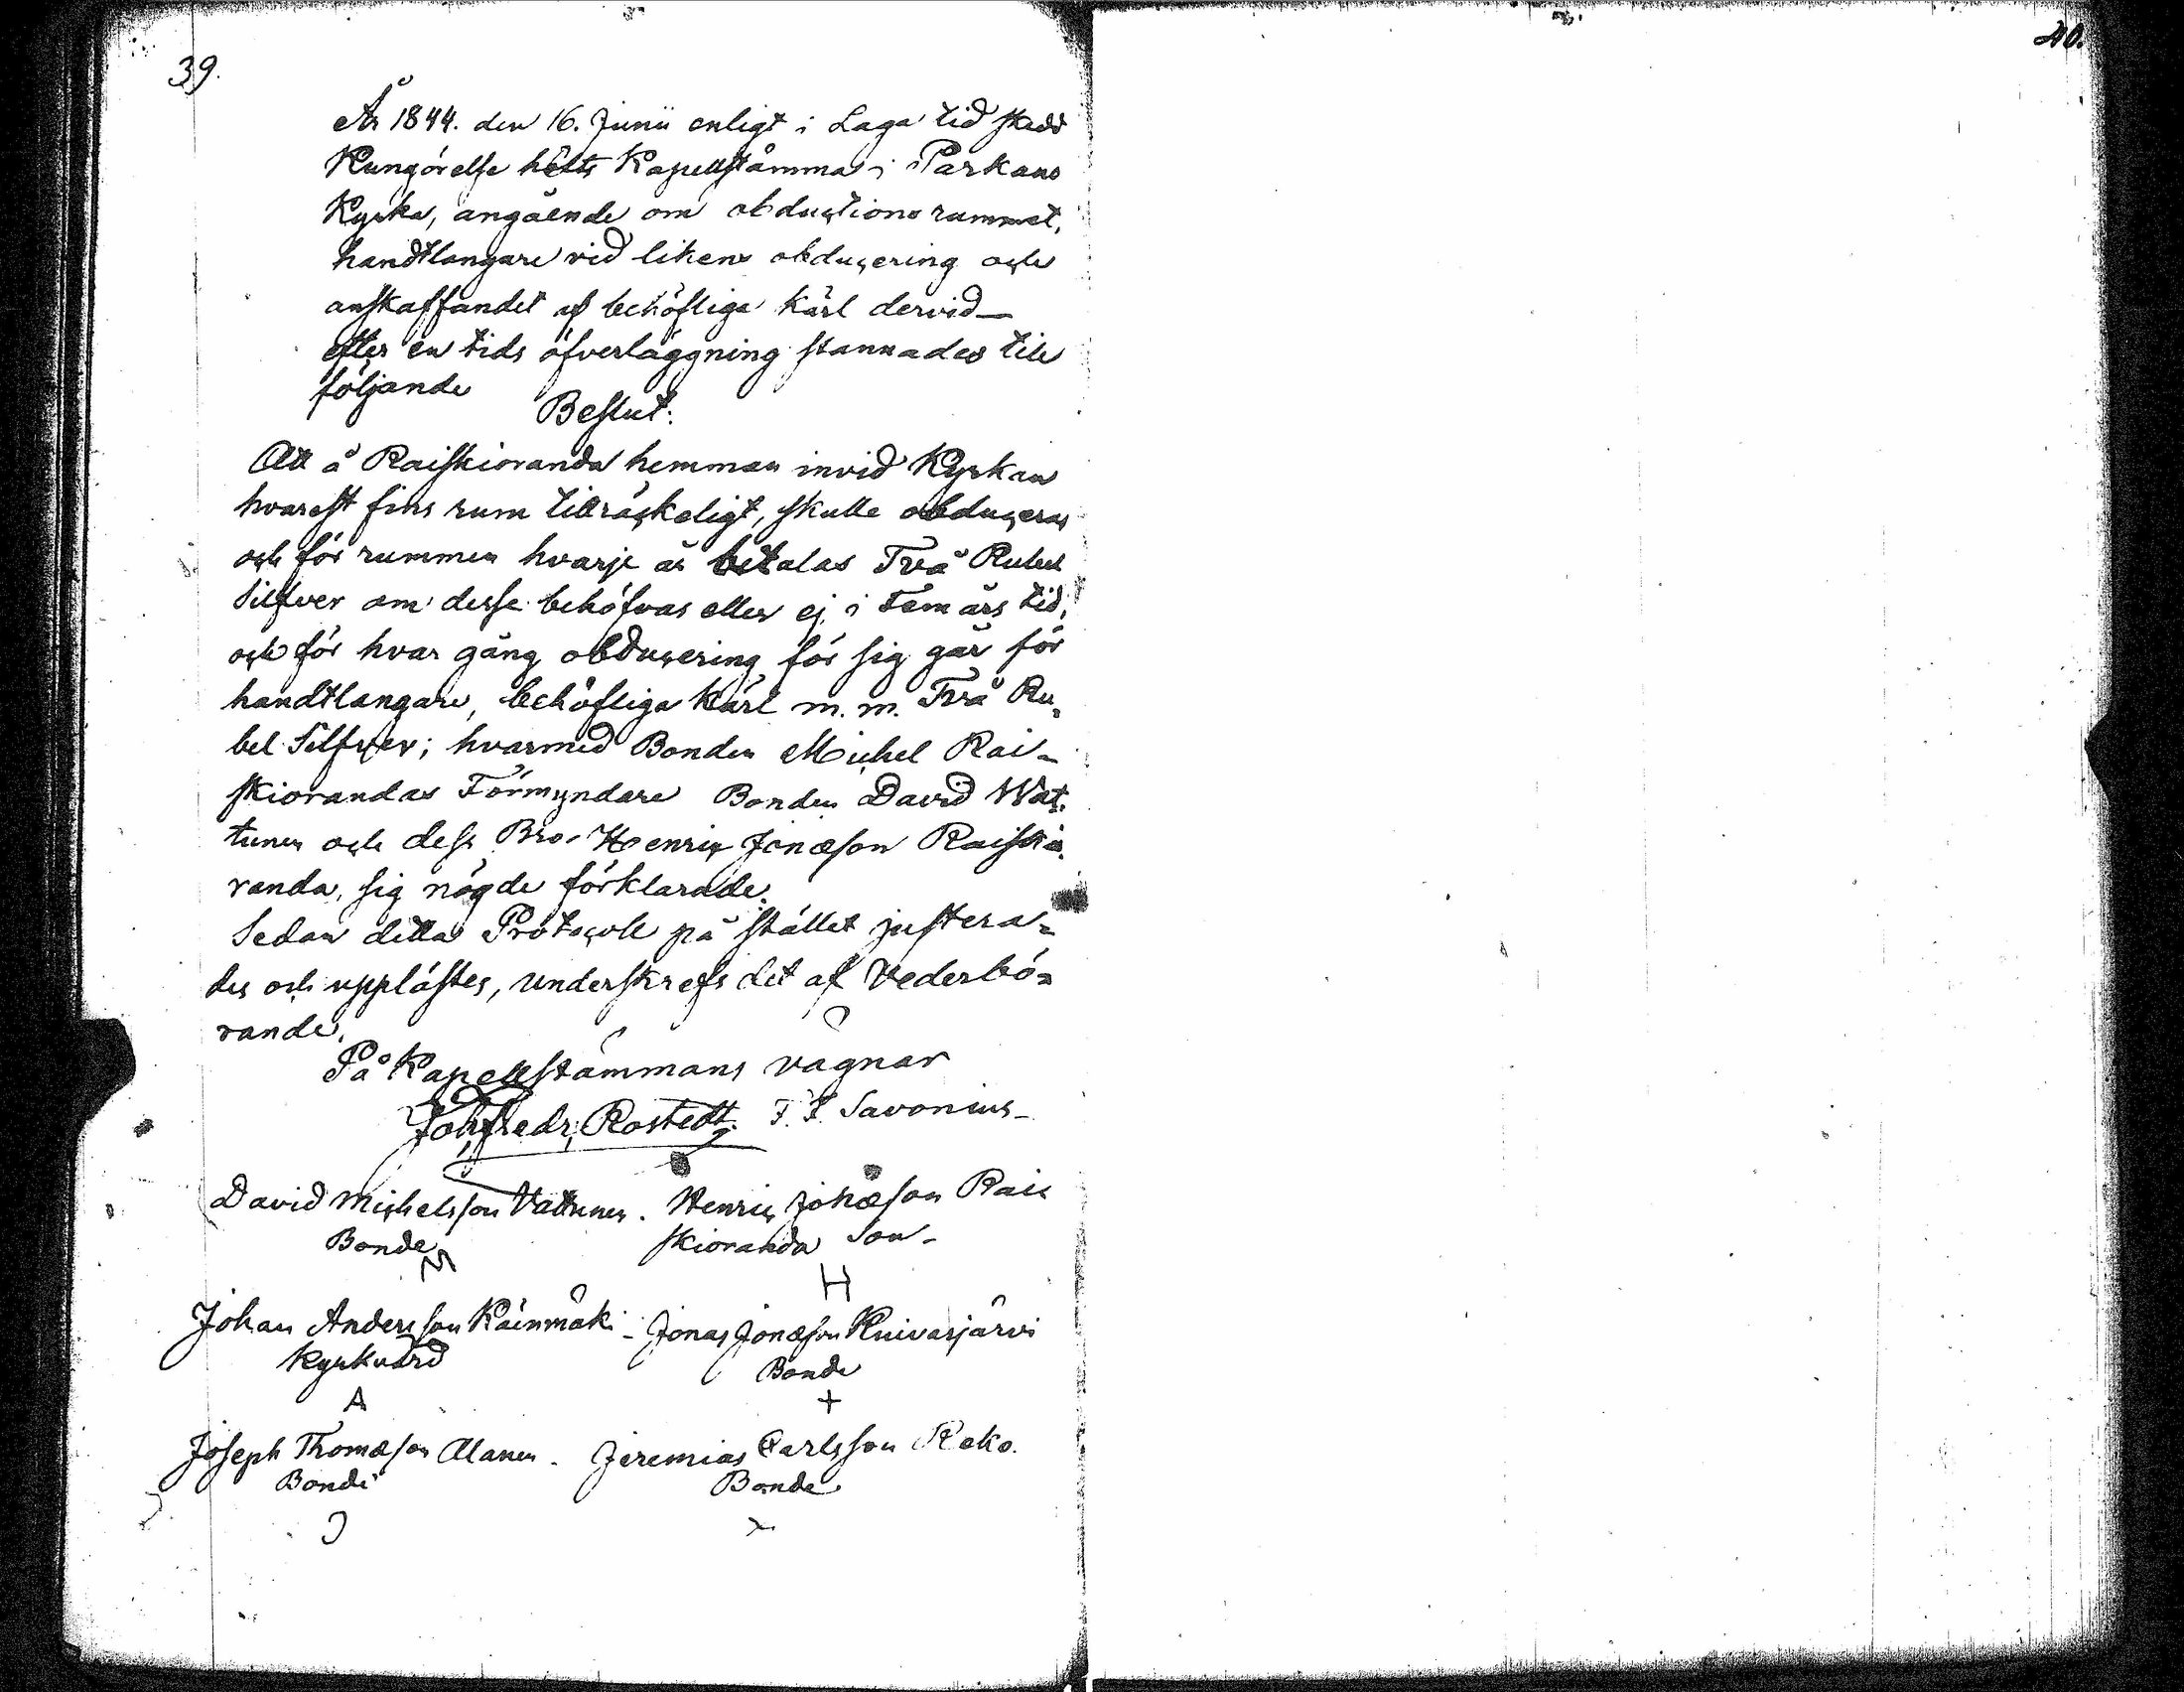 39.
40.
År 1844. den 16. Junii enligt i Laga tid skedd
Kungörelse hölts Kapellstämma i Parkano
Kyrka, angående om obductions rummet,
handtlangare vid likens obducering och
anskaffandet af behöfliga kärl dervid—
efter en tids öfverläggning stannades till
följande
Beslut:
Att å Raiskioranda hemman invid Kyrkan
hvarest fins rum tillräckeligt, skulle obduceras
och för rummen hvarje år betalas Två Rubel
Silfver om desse behöfvas eller ej i Fem års tid,
och för hvar gång obducering för sig går för
handtlangare, behöfliga kärl m. m. Två Ru-
bel Silfver; hvarmed Bonden Michel Rai-
skiorandas Förmyndare Bonden David Wat-
tunen och dess Bror Henric Jonæson Raiskio-
randa, sig nögde förklarade.
Sedan detta Protocoll på stället justera-
des och upplästes, underskrefs det af Vederbö-
rande.
På Kapellstämmans vägnar
Joh. Fredr. Rostedt. F. F. Savonius-
David Michelsson Vattunen. Henric Jonæson Rais
Bonde skioranda Son-
M H
Johan Andersson Käinmäki - Jonas Jonæson Kuivasjärvi
Kyrkvärd Bonde
A +
Joseph Thomæson Alanen. Jeremias Carlsson Reko.
Bonde Bonde